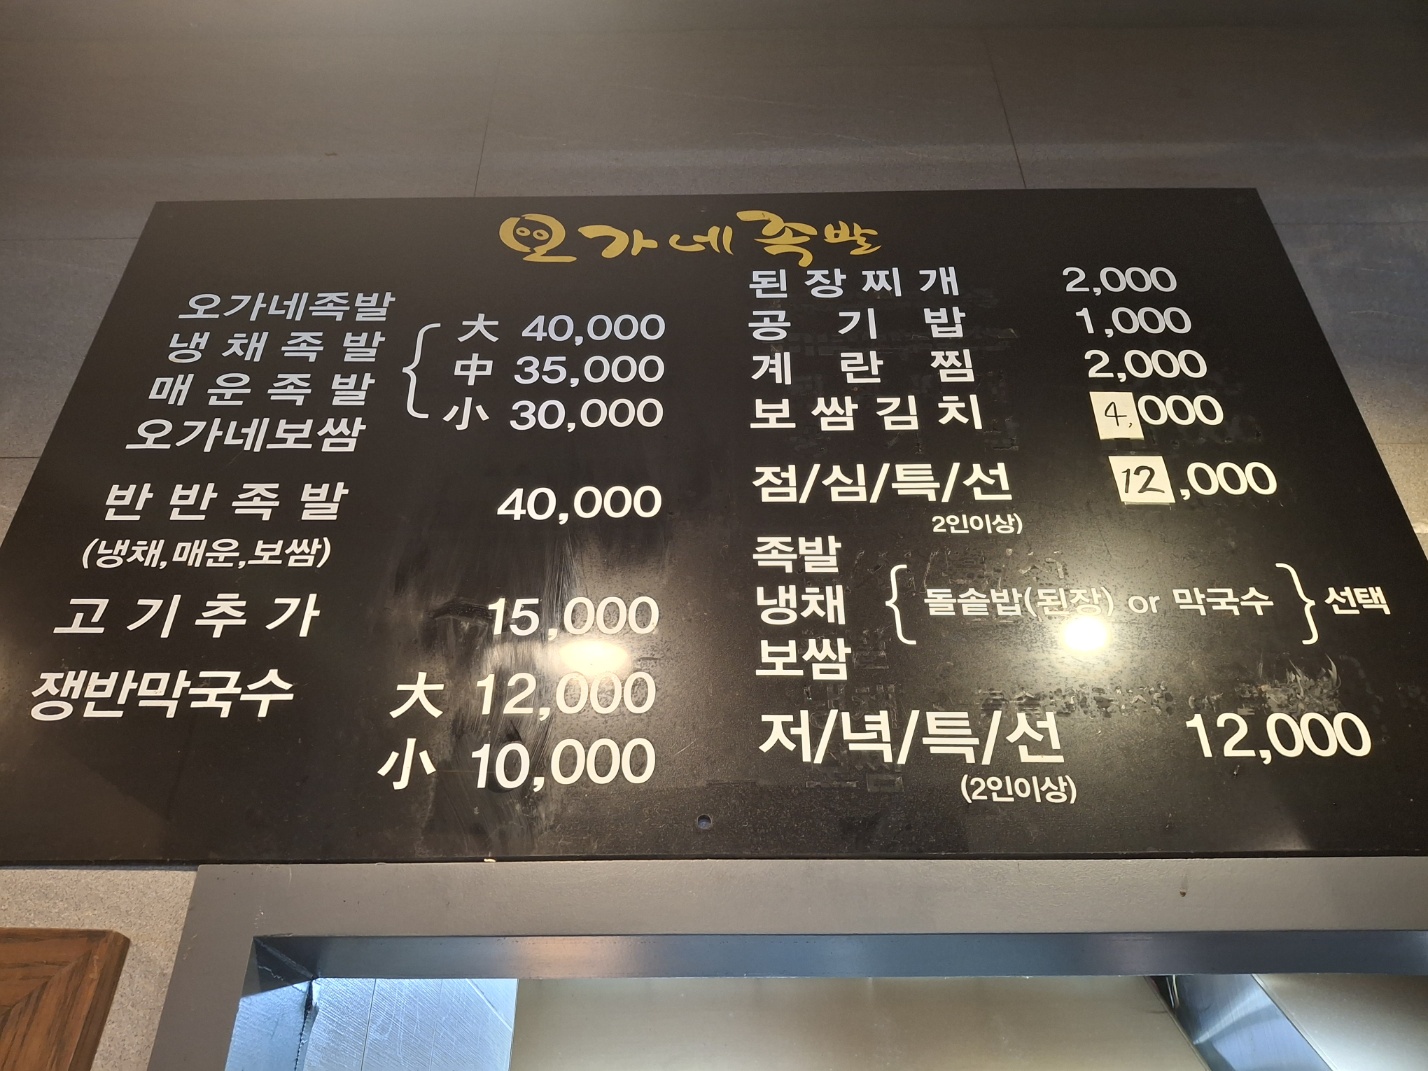 오가네족발
오가네족발
냉채족발
매운족발
오가네보쌈
大 40,000
中 35,000
小 30,000
반반족발 40,000
(냉채,매운,보쌈)
고기추가 15,000
쟁반막국수 大 12,000
小 10,000
된장찌개 2,000
공기밥 1,000
계란찜 2,000
보쌈김치 4,000
점/심/특/선 12,000
2인이상)
족발
냉채 { 돌솥밥(된장) or 막국수 } 선택
보쌈
저/녁/특/선 12,000
(2인이상)